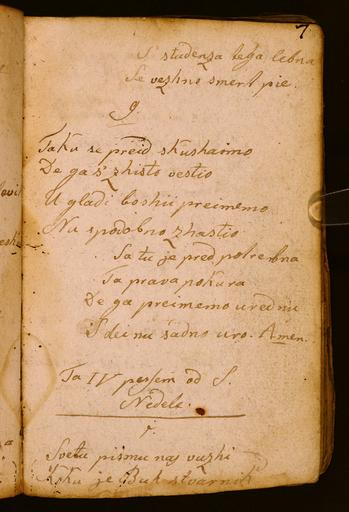 7
S' studenza tega lebna
Se vezhno smert pie.
9
Taku se preid skushaimo
De ga s' zhisto vestio
U gladi boshii preimemo
Nu spodobno zhastio
Sa tu je pred potrebna
Ta prava pokura
De ga preimemo urednu
S' dei nu sadno uro. Amen.
Ta IV pessem od S.
Nedele.
1.
Svetu pismu nas vuzhi
Koku je Buh stvarnik